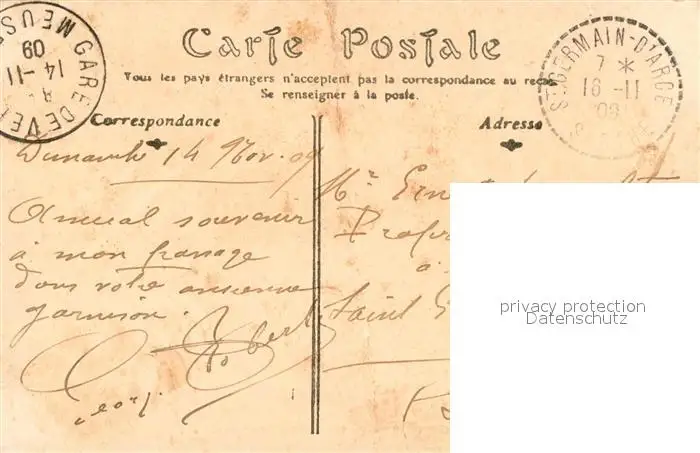 Carte Postale
Tous les pays étrangers n'acceptent pas la correspondance au recto
Se renseigner à la poste.
GARE DE VE
MEUSE
14-11
09
ST GERMAIN-D'ARCE
7 *
16-11
09
Correspondance
Adresse
Dimanche 14 Nov. 09
Amical souvenir
à mon passage
dans votre ancienne
garnison.
Robert
Mr Ern
Profes
à
Saint G
privacy protection
Datenschutz